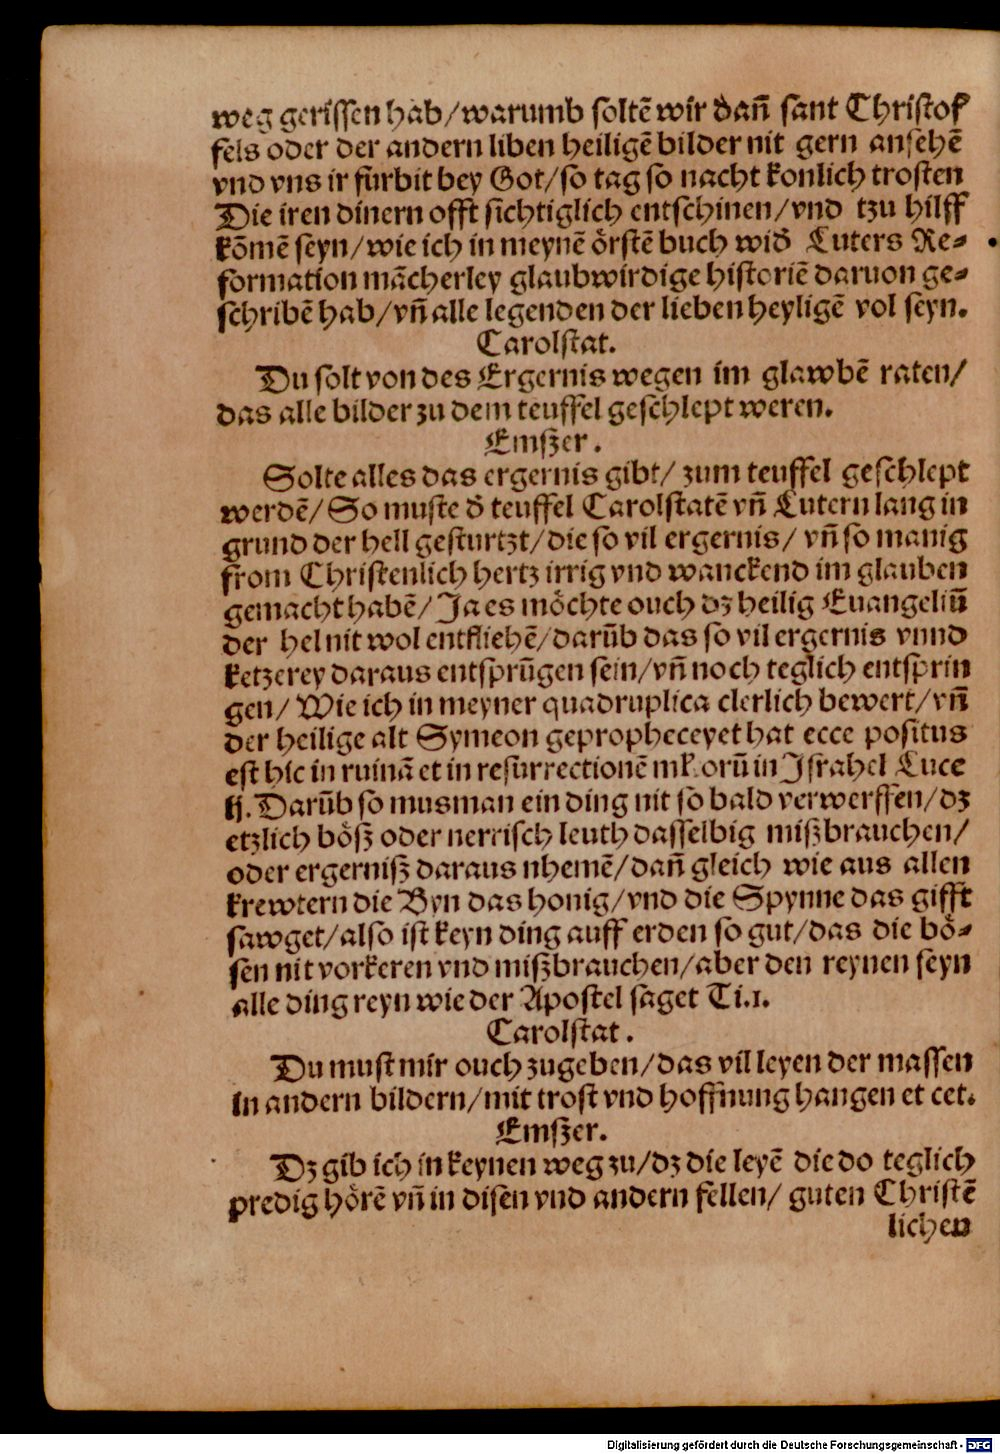 weg gerissen hab/warumb soltē wir dañ sant Christof
fels oder der andern liben heiligē bilder nit gern ansehē
vnd vns ir fürbit bey Got/so tag so nacht konlich trosten
Die iren dinern offt sichtiglich entschinen/vnd tzu hilff
kōmē seyn/wie ich in meynē örstē buch wid̄ Luters Re⸗
formation mācherley glaubwirdige historiē daruon ge⸗
schribē hab/vñ alle legenden der lieben heyligē vol seyn.
Carolstat.
Du solt von des Ergernis wegen im glawbē raten/
das alle bilder zu dem teuffel geschlept weren.
Emszer.
Solte alles das ergernis gibt/ zum teuffel geschlept
werdē/ So muste d̄ teuffel Carolstatē vñ Lutern lang in
grund der hell gesturtzt/die so vil ergernis/ vñ so manig
from Christenlich hertz irrig vnd wanckend im glauben
gemacht habē/ Ja es möchte ouch dz heilig Euangeliū
der hel nit wol entfliehē/darūb das so vil ergernis vnnd
ketzerey daraus entsprūgen sein/vñ noch teglich entsprin
gen/ Wie ich in meyner quadruplica clerlich bewert/vñ
der heilige alt Symeon gepropheceyet hat ecce positus
est hic in ruinā et in resurrectionē orū in Israhel Luce
ij. Darūb so mus man ein ding nit so bald verwerffen/dz
etzlich bösz oder nerrisch leuth dasselbig miszbrauchen/
oder ergernisz daraus nhemē/dañ gleich wie aus allen
krewtern die Byn das honig/vnd die Spynne das gifft
sawget/also ist keyn ding auff erden so gut/das die bö⸗
sen nit vorkeren vnd miszbrauchen/aber den reynen seyn
alle ding reyn wie der Apostel saget Ti.1.
Carolstat.
Du must mir ouch zugeben/das vil leyen der massen
in andern bildern/mit trost vnd hoffnung hangen et cet.
Emszer.
Dz gib ich in keynen weg zu/dz die leyē die do teglich
predig hörē vñ in disen vnd andern fellen/ guten Christē
lichen
Digitalisierung gefördert durch die Deutsche Forschungsgemeinschaft - DFG